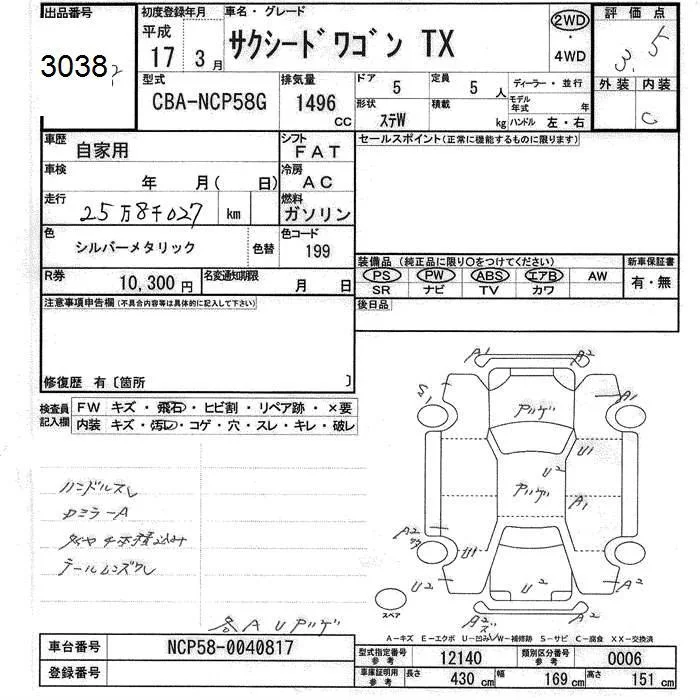 出品番号
3038
初度登録年月
平成
17 3月
車名・グレード
サクシードワゴン TX
2WD
・
4WD
評価点
3.5
外装 内装
C
型式
CBA-NCP58G
排気量
1496
CC
ドア
5
定員
5人
ディーラー・並行
形状
ステW
積載
kg
モデル
年式
年
ハンドル 左・右
車歴
自家用
シフト
FAT
セールスポイント(正常に機能するものに限ります)
車検
年 月( 日)
冷房
AC
走行
25万8千027
km
燃料
ガソリン
色
シルバーメタリック
色替
色コード
199
装備品 (純正品に限り○をつけてください)
新車保証書
PS PW ABS エアB AW
SR ナビ TV カワ
有・無
R券
10,300円
名変通知期限
月 日
後日品
注意事項申告欄(不具合内容等は具体的に記入して下さい)
修復歴 有〔箇所 〕
検査員
記入欄
FW キズ・飛石・ヒビ割・リペア跡・×要
内装 キズ・汚レ・コゲ・穴・スレ・キレ・破レ
ハンドルスレ
Dミラー A
タイヤ4本積込み
テールレンズワレ
各AUアリゲ
A1 A2
S1
A1
アリゲ
U1
U2
アリゲ
A1
A2
U1
U2
U2
A2
A2
A2
スペア
A-キズ E-エクボ U-凹み W-補修跡 S-サビ C-腐食 XX-交換済
車台番号
NCP58-0040817
登録番号
型式指定番号
参考
12140
類別区分番号
参考
0006
車庫証明用
参考
長さ
430 cm
幅
169 cm
高さ
151 cm